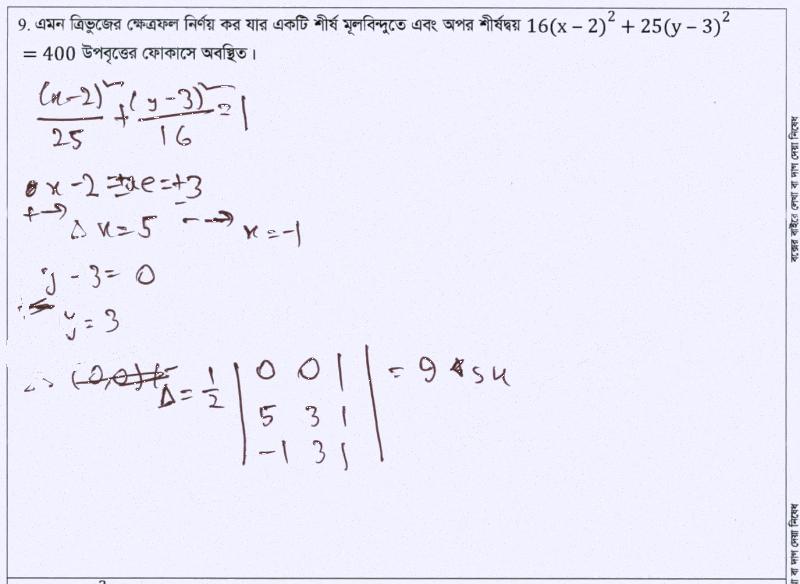 9. এমন ত্রিভুজের ক্ষেত্রফল নির্ণয় কর যার একটি শীর্ষ মূলবিন্দুতে এবং অপর শীর্ষদ্বয় 16(x – 2)² + 25(y – 3)²
= 400 উপবৃত্তের ফোকাসে অবস্থিত।
(x-2)²/25 + (y-3)²/16 = 1
x-2 = ±ae = ±3
+→ Δ x=5 -→ x=-1
y-3=0
y=3
∴ (0,0) Δ = 1/2 | 0 0 1 | = 9 su
5 3 1
-1 3 1
বক্সের বাইরে লেখা বা দাগ দেয়া নিষেধ
বা দাগ দেয়া নিষেধ